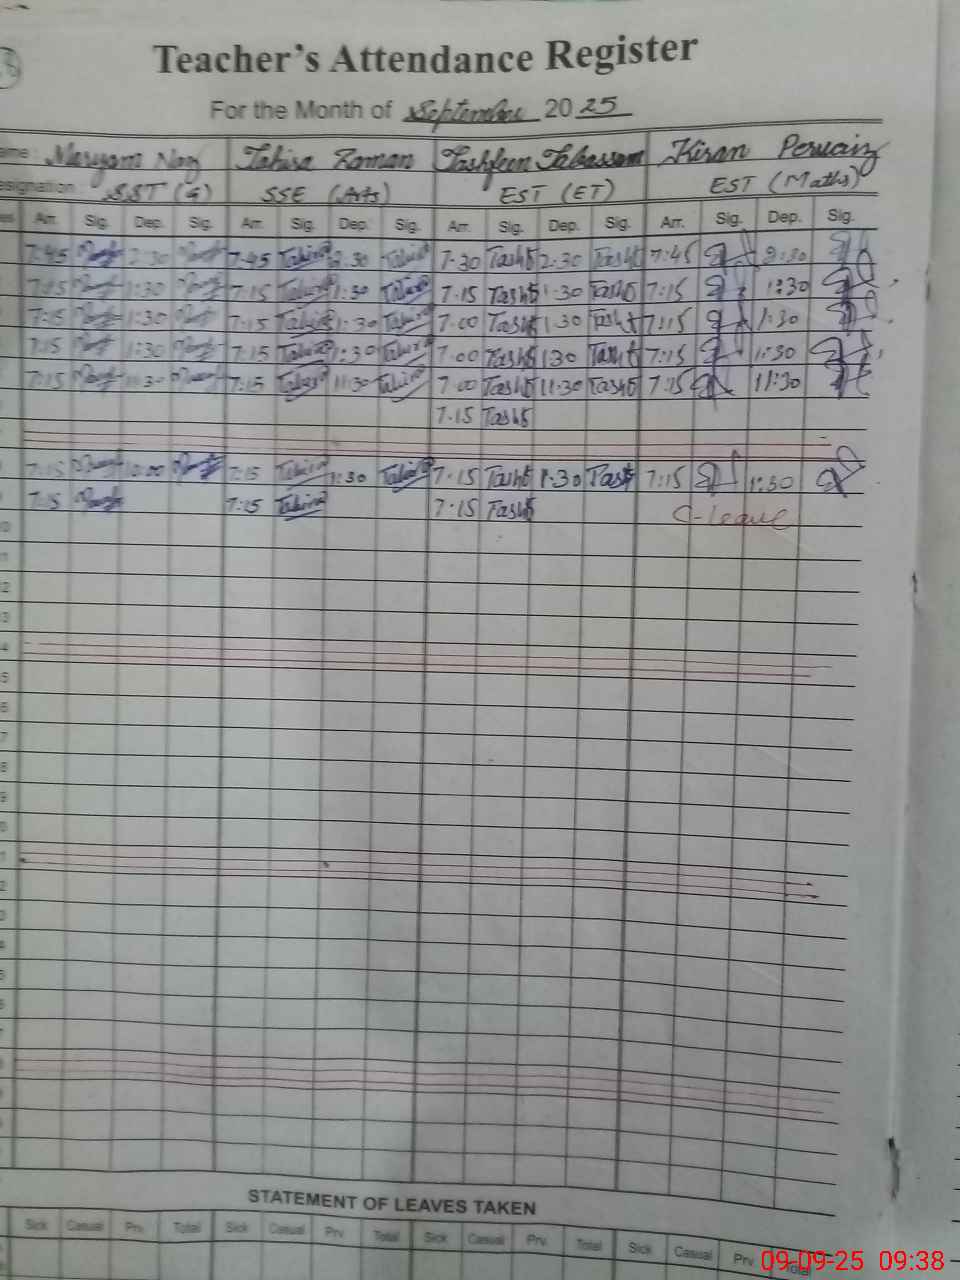 Teacher's Attendance Register
For the Month of September 2025
Name: Maryam Naz Tahira Zaman Tashfeen Tabassam Kiran Pervaiz
Designation: SST (G) SSE (Arts) EST (ET) EST (Maths)
Arr. Sig. Dep. Sig. Arr. Sig. Dep. Sig. Arr. Sig. Dep. Sig. Arr. Sig. Dep. Sig.
7:45 2:30 7:45 Tahira 2:30 Tahira 7:30 Tash 2:30 Tash 7:45 2:30
7:15 1:30 7:15 Tahira 1:30 Tahira 7:15 Tash 1:30 Tash 7:15 1:30
7:15 1:30 7:15 Tahira 1:30 Tahira 7:00 Tash 1:30 Tash 7:15 1:30
7:15 1:30 7:15 Tahira 1:30 Tahira 7:00 Tash 1:30 Tash 7:15 1:30
7:15 11:30 7:15 Tahira 11:30 Tahira 7:00 Tash 11:30 Tash 7:15 11:30
7:15 Tash
7:15 10:00 7:15 Tahira 1:30 Tahira 7:15 Tash 1:30 Tash 7:15 1:30
7:15 7:15 Tahira 7:15 Tash C-leave
STATEMENT OF LEAVES TAKEN
Sick Casual Prv. Total Sick Casual Prv. Total Sick Casual Prv. Total Sick Casual Prv. Total
09-09-25 09:38